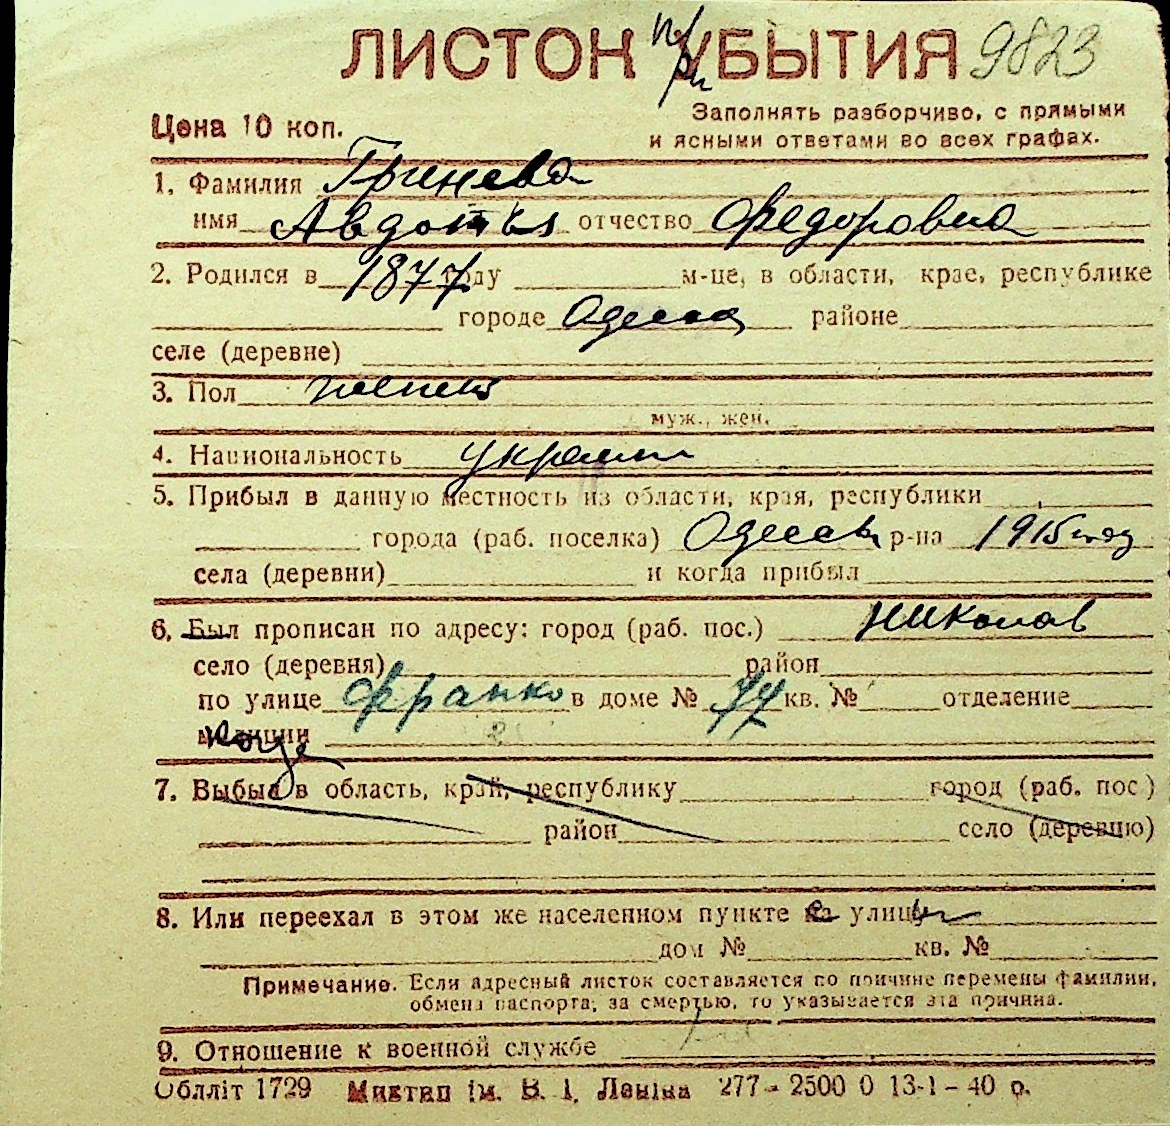 ЛИСТОК УБЫТИЯ при 9823
Цена 10 коп.
Заполнять разборчиво, с прямыми
и ясными ответами во всех графах.
1. Фамилия Гринева
имя Авдотья отчество Федоровна
2. Родился в 1877 году м-це, в области, крае, республике
городе Одесса районе
селе (деревне)
3. Пол женск
муж., жен.
4. Национальность украин
5. Прибыл в данную местность из области, края, республики
города (раб. поселка) Одессы р-на 1915 год
села (деревни) и когда прибыл
6. Был прописан по адресу: город (раб. пос.) Николаев
село (деревня) район
по улице Франко в доме № 74 кв. № отделение
милиции
7. Выбыл в область, край, республику город (раб. пос.)
район село (деревню)
8. Или переехал в этом же населенном пункте с улицы
дом № кв. №
Примечание. Если адресный листок составляется по причине перемены фамилии,
обмена паспорта, за смертью, то указывается эта причина.
9. Отношение к военной службе
Облліт 1729 Миктип ім. В. І. Леніна 277 - 2500 0 13-1-40 р.